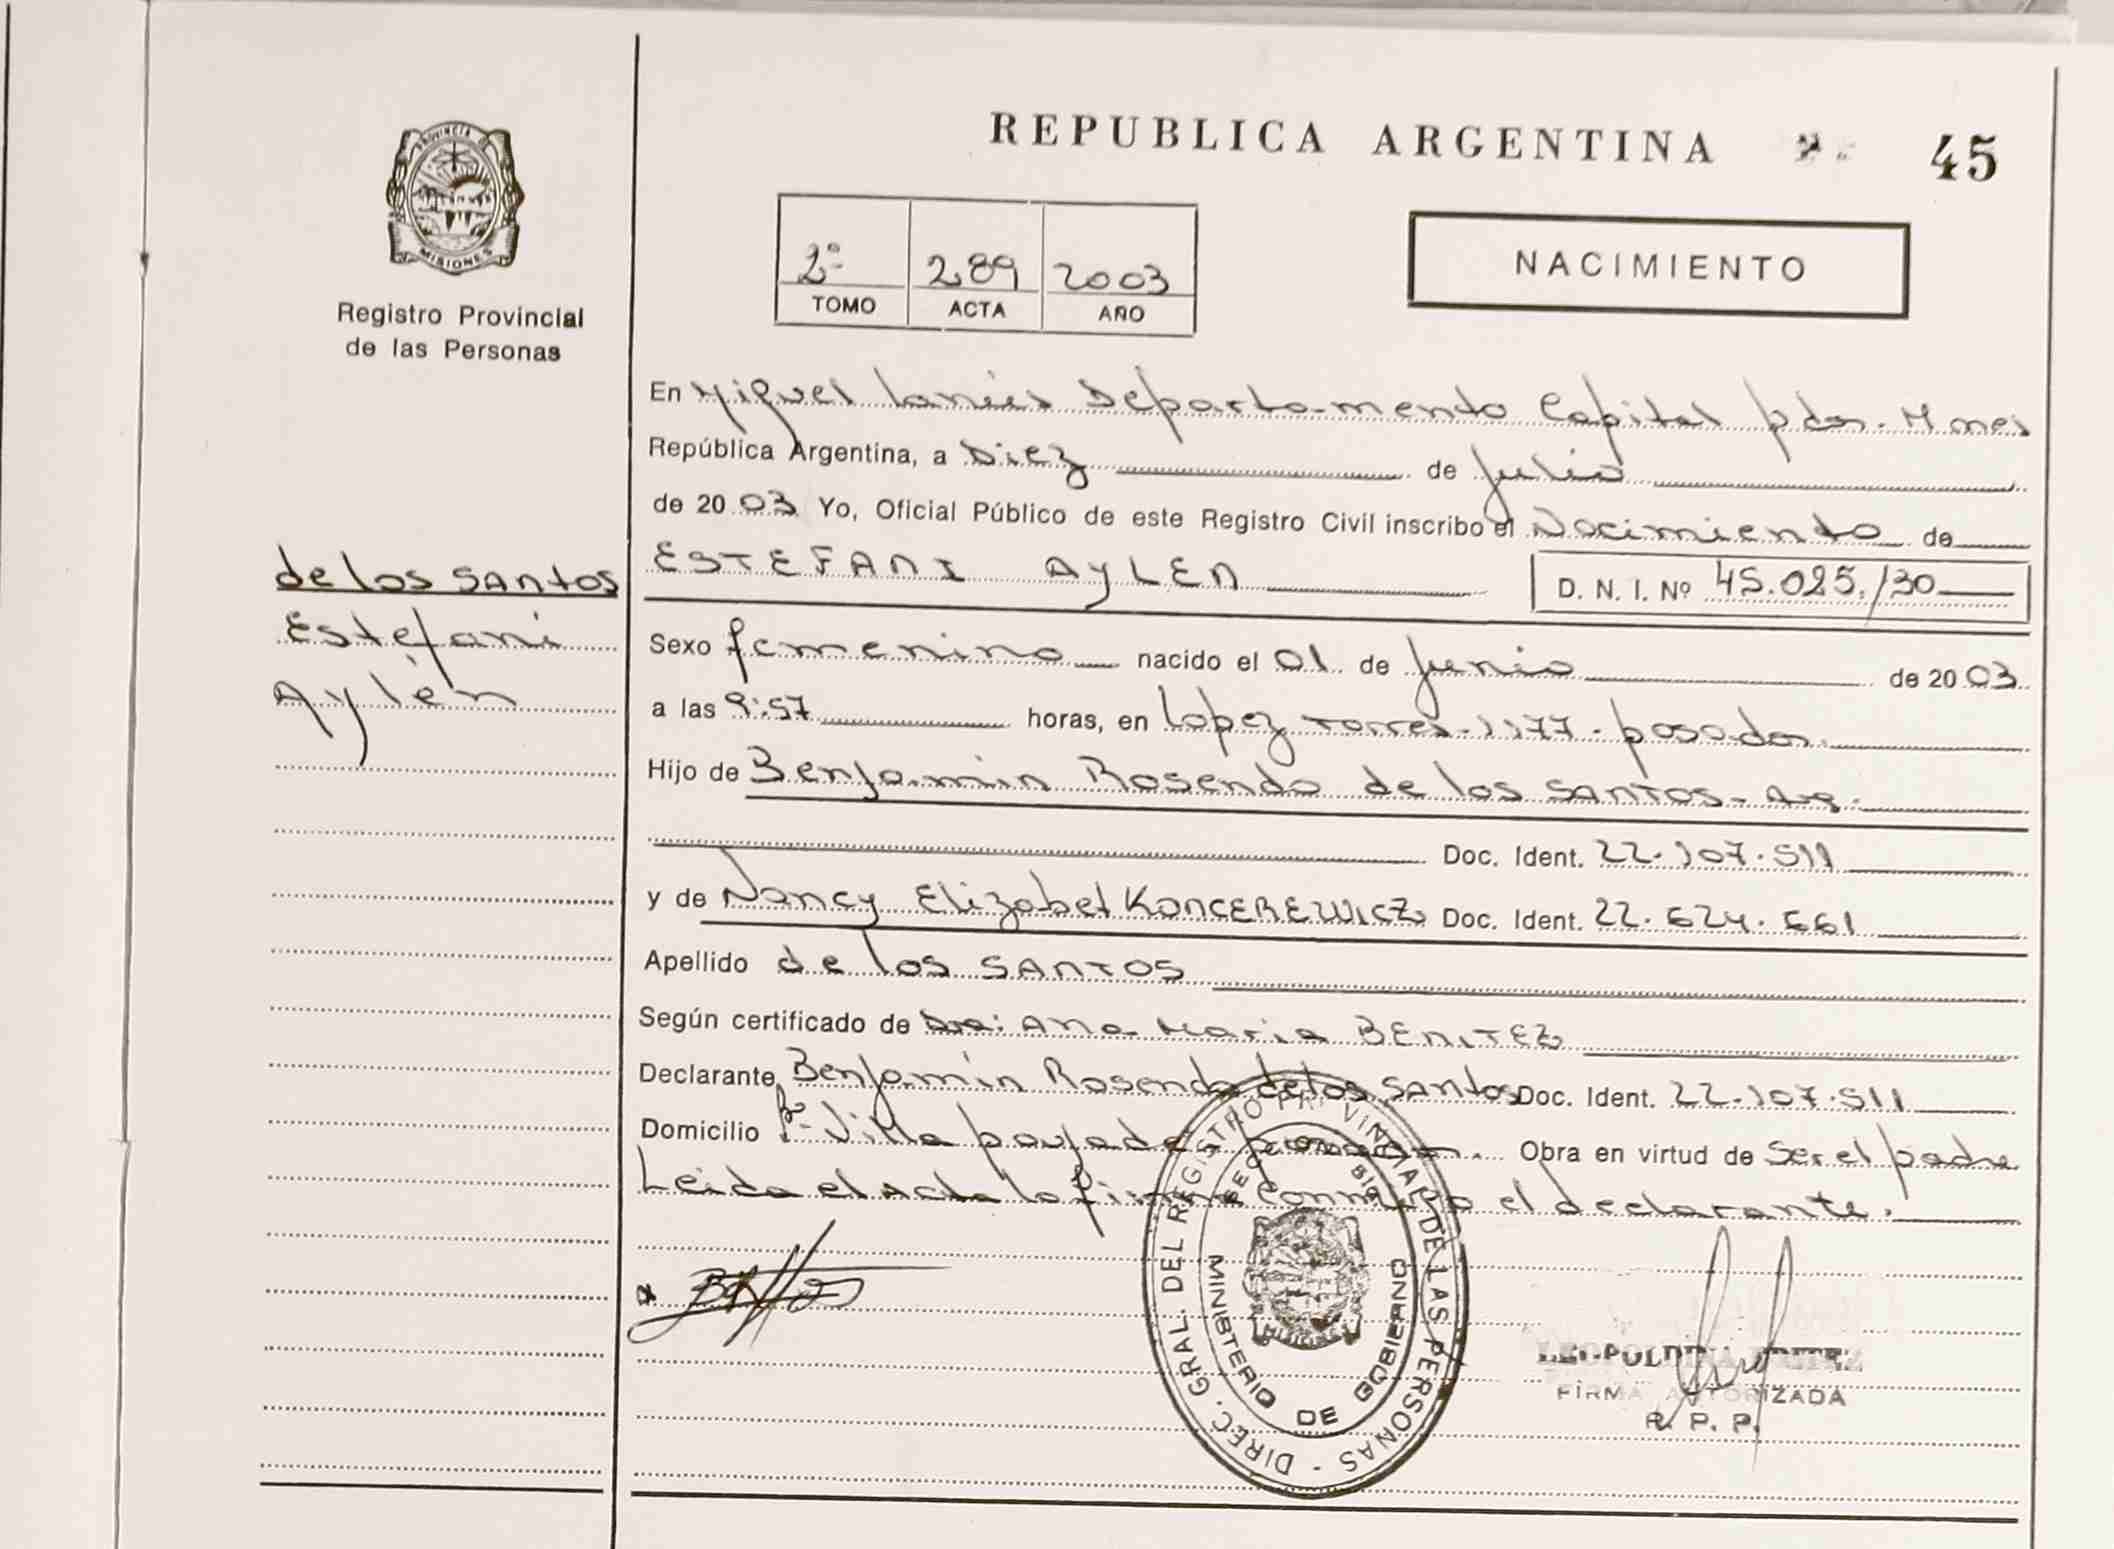 REPUBLICA ARGENTINA
45
PROVINCIA DE
MISIONES
Registro Provincial
de las Personas
2º 289 2003
TOMO ACTA AÑO
NACIMIENTO
En Miguel Lanús Departamento Capital pdas. Mnes
República Argentina, a Diez de julio
de 2003 Yo, Oficial Público de este Registro Civil inscribo el Nacimiento de
de los SANTOS
Estefani
Aylén
ESTEFANI AYLEN D. N. I. Nº 45.025.130
Sexo femenino nacido el 01 de junio de 2003
a las 9:57 horas, en Lopez Torres-1177-posadas.
Hijo de Benjamin Rosendo de los SANTOS-Arg.
Doc. Ident. 22.107.511
y de Nancy Elizabet KONCEREWICZ Doc. Ident. 22.624.661
Apellido de los SANTOS
Según certificado de Dra: Ana Maria BENITEZ
Declarante Benjamin Rosendo de los SANTOS Doc. Ident. 22.107.511
Domicilio Villa Obra en virtud de Ser el padre
Leida el Acta la firma conmigo el declarante.
DIREC. GRAL. DEL REGISTRO PROVINCIAL DE LAS PERSONAS -
MINISTERIO DE GOBIERNO
LEOPOLDINA
FIRMA AUTORIZADA
R. P. P.